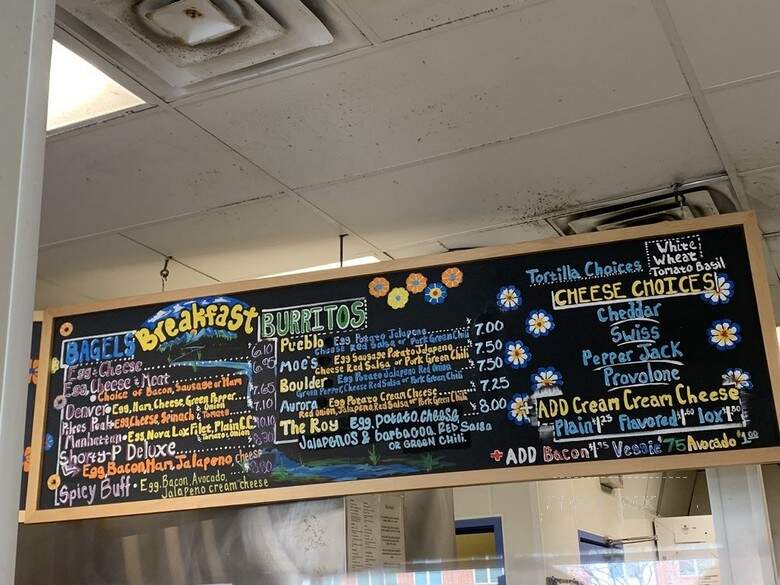 Breakfast
BAGELS
Egg-Cheese 6.10
Egg, Cheese & Meat 6.95
Choice of Bacon, Sausage or Ham
Denver Egg, Ham, Cheese, Green Pepper 7.65
Onion
Pikes Peak Egg, Cheese, Spinach & Tomato 7.10
Manhattan Egg, Nova Lox Filet, Plain CC
Tomato, Onion
Shorty-P Deluxe
Egg Bacon, Ham, Jalapeno cheese
Spicy Buff • Egg, Bacon, Avocado,
Jalapeno cream cheese
BURRITOS
Pueblo Egg Potato Jalapeno 7.00
Cheese Red Salsa or Pork Green Chili
Moe's Egg Sausage Potato Jalapeno 7.50
Cheese Red Salsa or Pork Green Chili
Boulder Egg Potato Jalapeno Red Onion 7.50
Green Pepper Cheese Red Salsa or Pork Green Chili
Aurora Egg Potato Cream Cheese 7.25
Red Onion, Jalapeno, Red Salsa or Pork Green Chili
The Roy Egg, Potato, Cheese, 8.00
Jalapenos & barbacoa Red Salsa
or Green Chili.
Tortilla Choices
White
Wheat
Tomato Basil
CHEESE CHOICES
Cheddar
Swiss
Pepper Jack
Provolone
ADD Cream Cream Cheese
Plain Flavored lox
+ ADD Bacon Veggie 75 Avocado 1.00